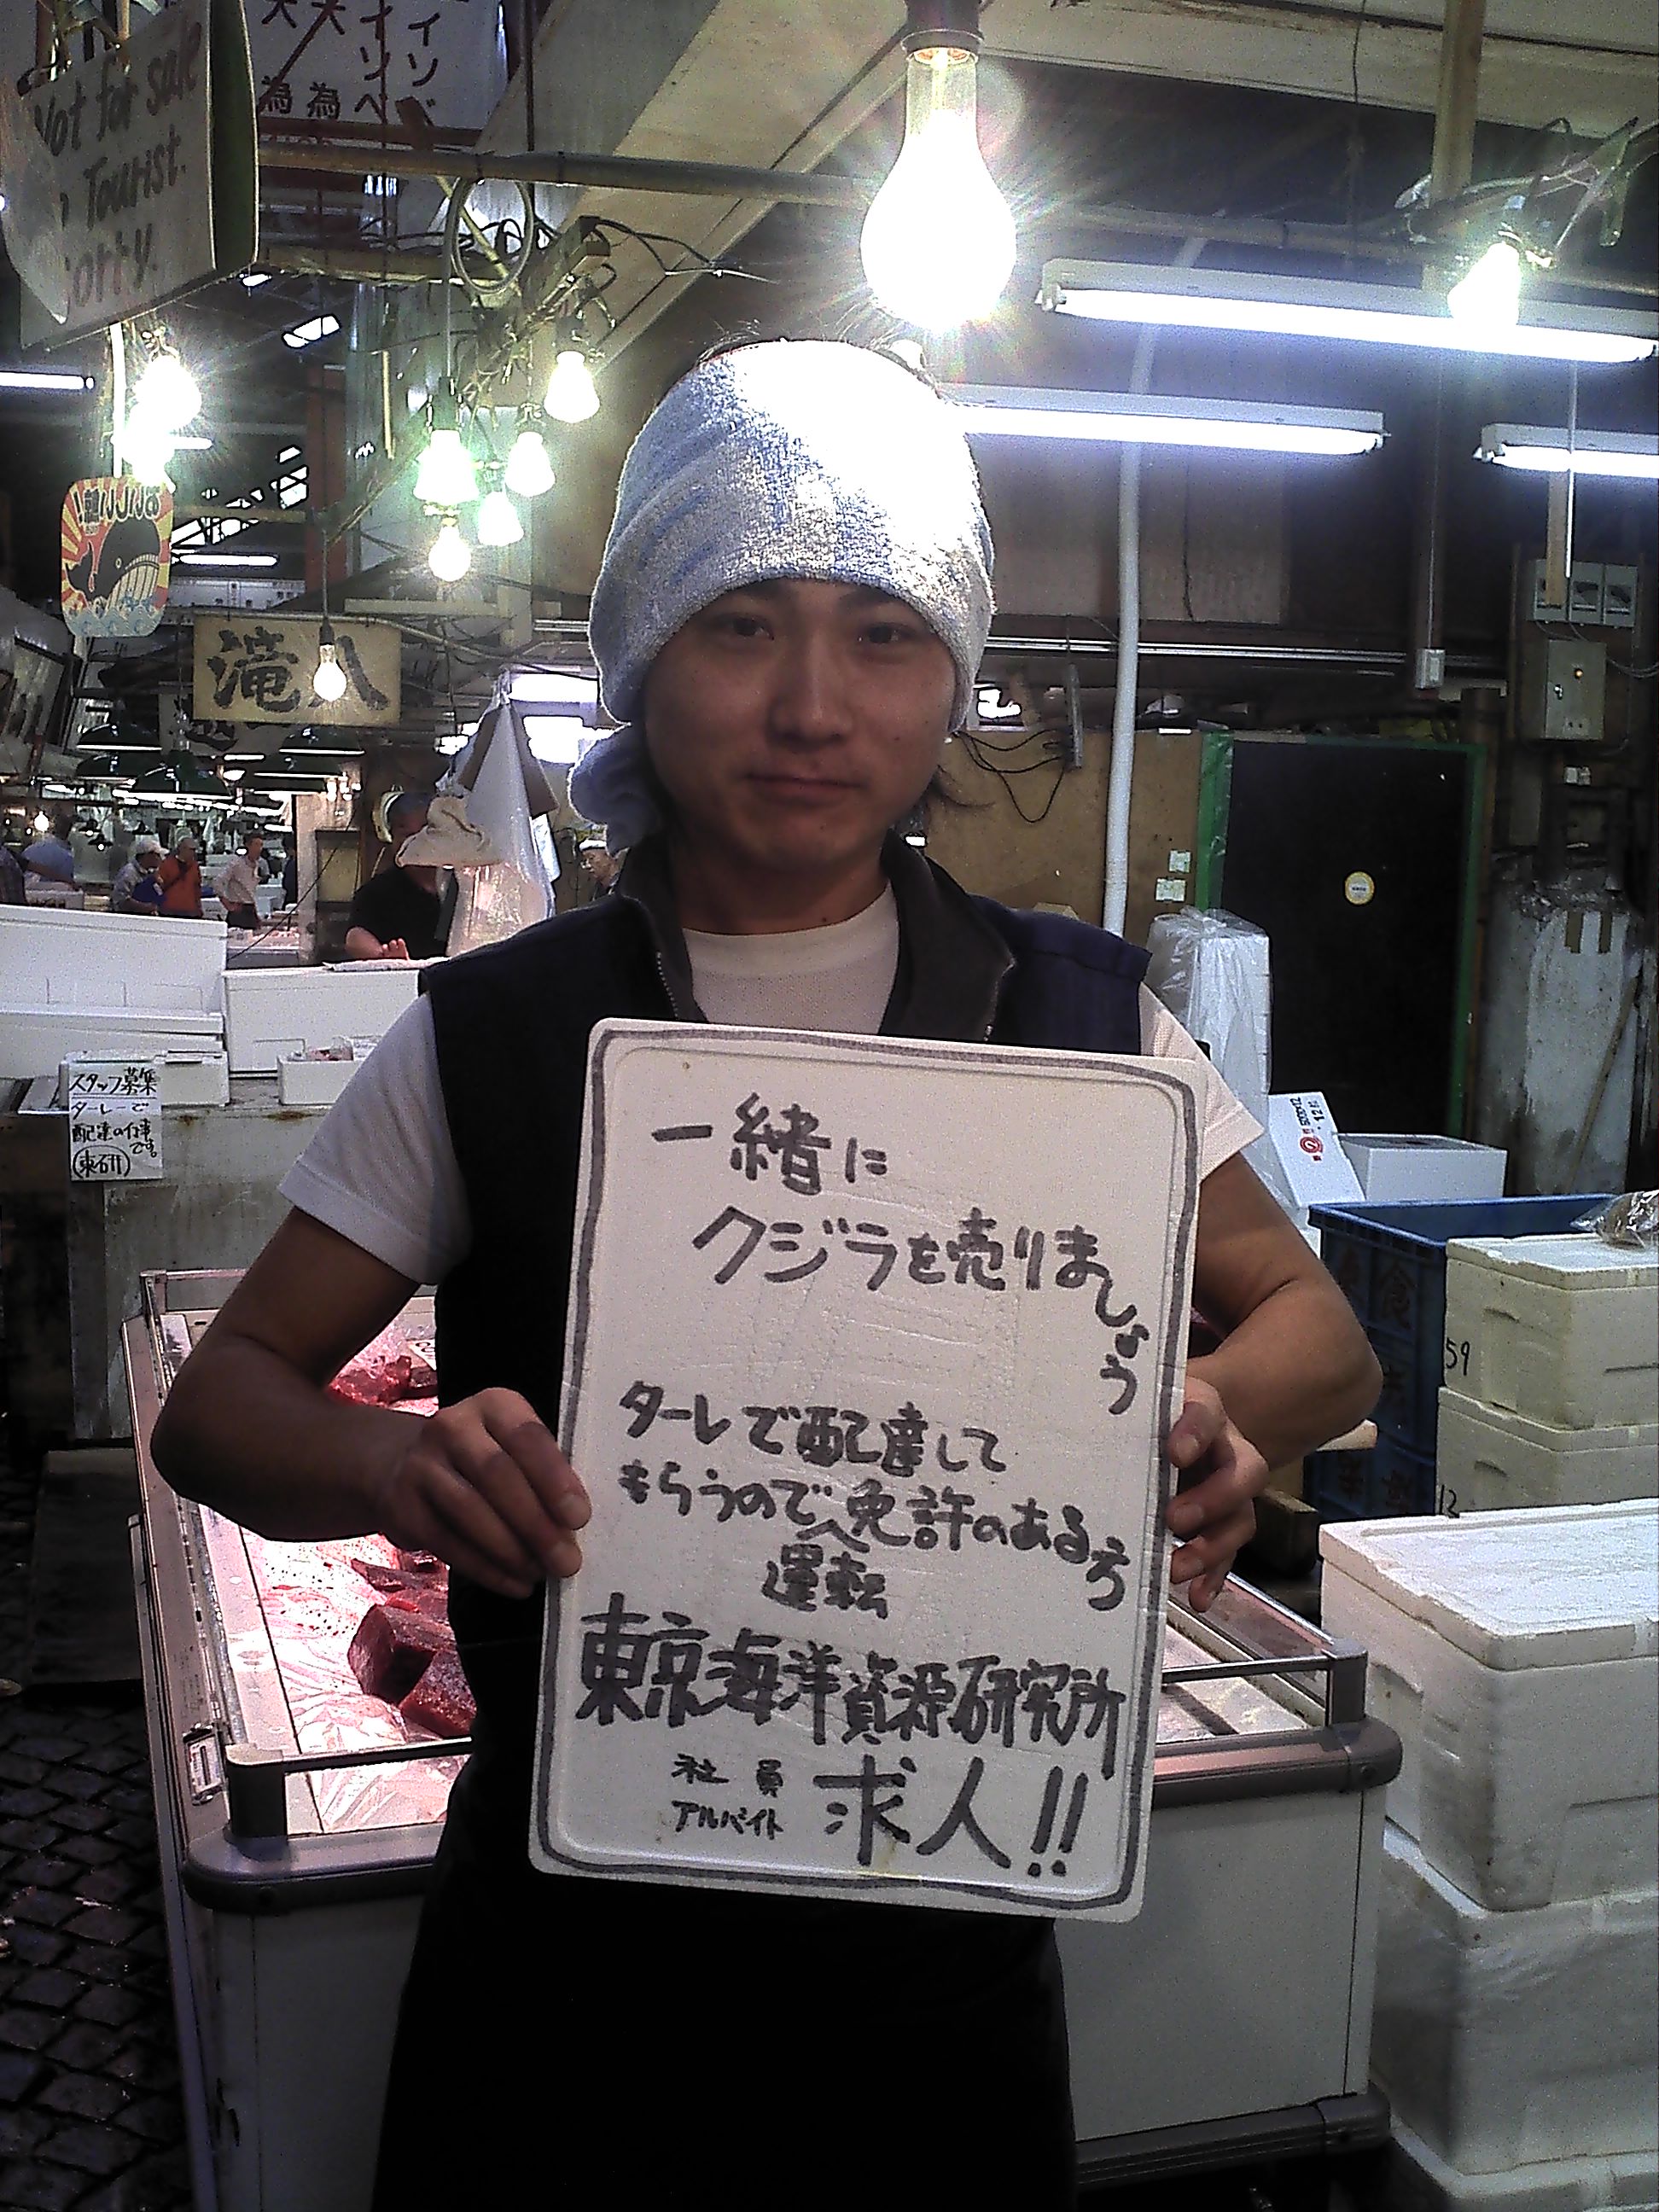 Not for sale
Tourist.
大
大
イソ
イソベ
為
為
滝八
スタッフ募集
ターレーで
配達の仕事
です。
東研
一緒に
クジラを売りましょう
ターレで配達して
もらうので免許のある方
運転
東京海洋資源研究所
社員
アルバイト
求人!!
59
12